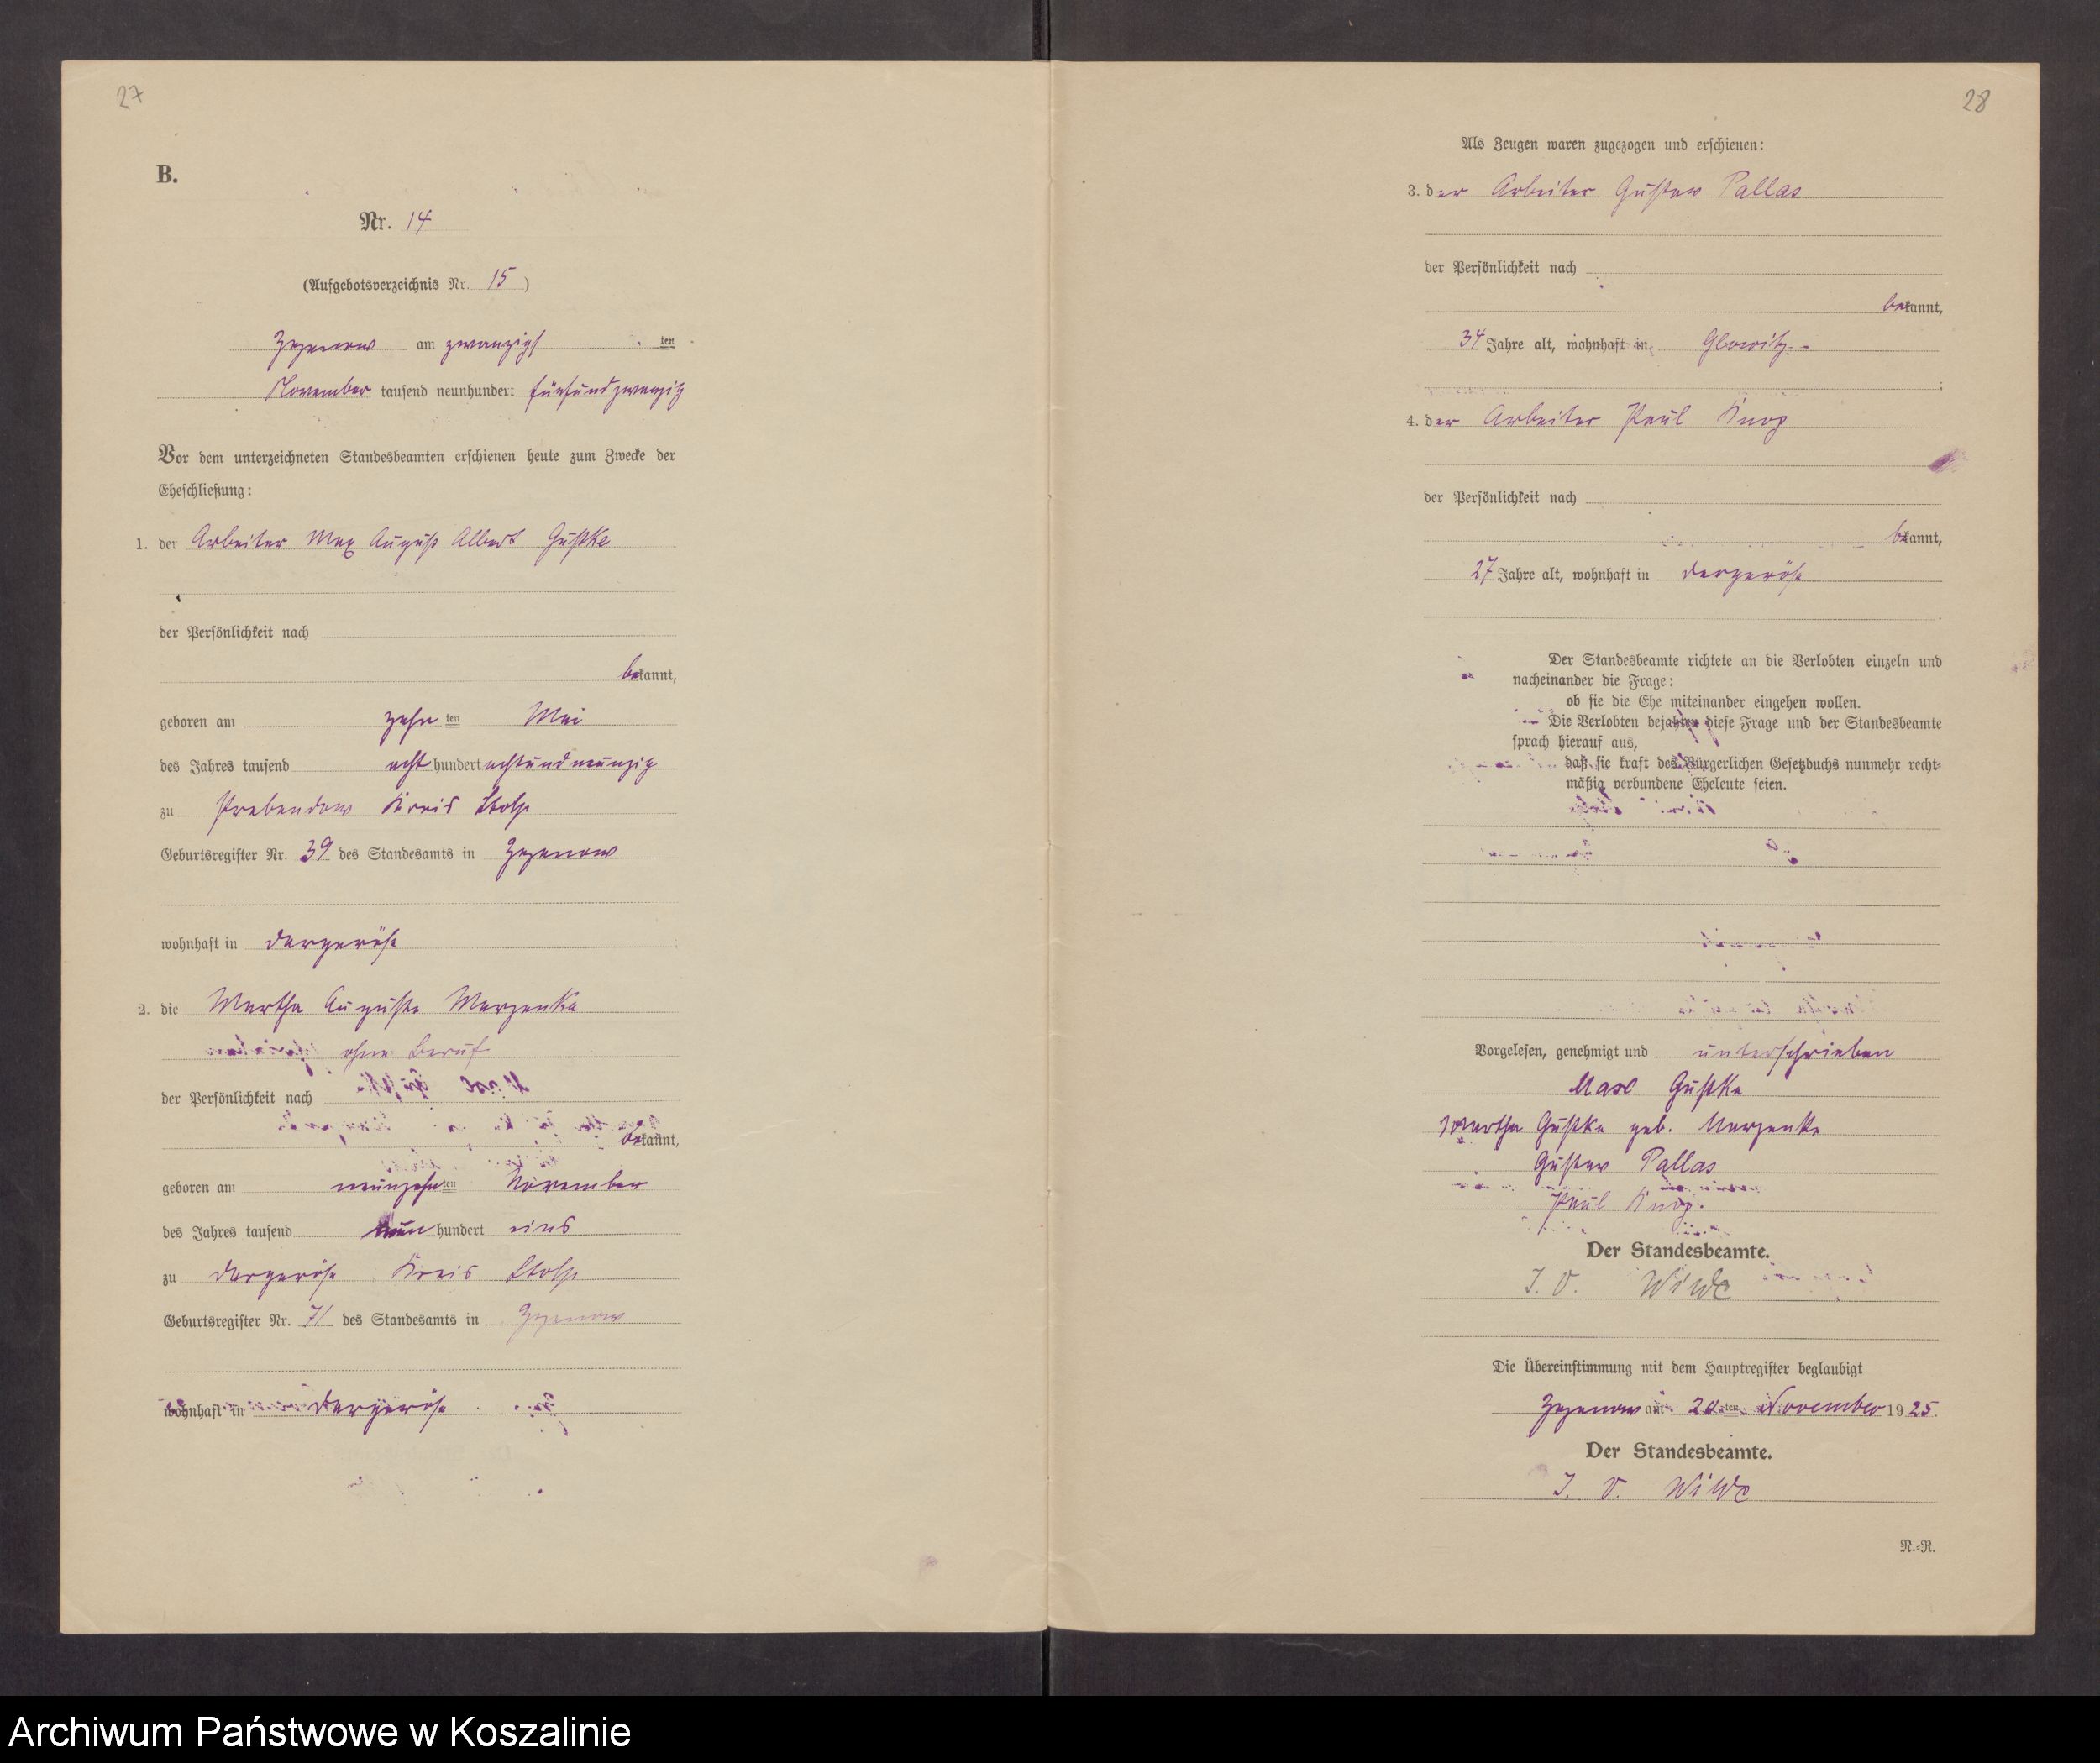 27
B.
Nr. 14
(Aufgebotsverzeichnis Nr. 15)
Zezenow am zwanzigsten
November tausend neunhundert fünfundzwanzig
Vor dem unterzeichneten Standesbeamten erschienen heute zum Zwecke der
Eheschließung:
1. der Arbeiter Max August Albert Gustke
der Persönlichkeit nach
bekannt,
geboren am zehnten Mai
des Jahres tausend achthundert achtundneunzig
zu Prebendow Kreis Stolp
Geburtsregister Nr. 39 des Standesamts in Zezenow
wohnhaft in Dargeröse
2. die Martha Auguste Marzenke
ohne Beruf
der Persönlichkeit nach
bekannt,
geboren am neunzehnten November
des Jahres tausend neunhundert eins
zu Dargeröse Kreis Stolp
Geburtsregister Nr. 71 des Standesamts in Zezenow
wohnhaft in Dargeröse
28
Als Zeugen waren zugezogen und erschienen:
3. der Arbeiter Gustav Pallas
der Persönlichkeit nach
bekannt,
34 Jahre alt, wohnhaft in Glowitz
4. der Arbeiter Paul Knop
der Persönlichkeit nach
bekannt,
27 Jahre alt, wohnhaft in Dargeröse
Der Standesbeamte richtete an die Verlobten einzeln und
nacheinander die Frage:
ob sie die Ehe miteinander eingehen wollen.
Die Verlobten bejahten diese Frage und der Standesbeamte
sprach hierauf aus,
daß sie kraft des Bürgerlichen Gesetzbuchs nunmehr recht-
mäßig verbundene Eheleute seien.
Vorgelesen, genehmigt und unterschrieben
Max Gustke
Martha Gustke geb. Marzenke
Gustav Pallas
Paul Knop.
Der Standesbeamte.
I. V. Wilde
Die Übereinstimmung mit dem Hauptregister beglaubigt
Zezenow am 20ten November 1925.
Der Standesbeamte.
I. V. Wilde
N.-R.
Archiwum Państwowe w Koszalinie